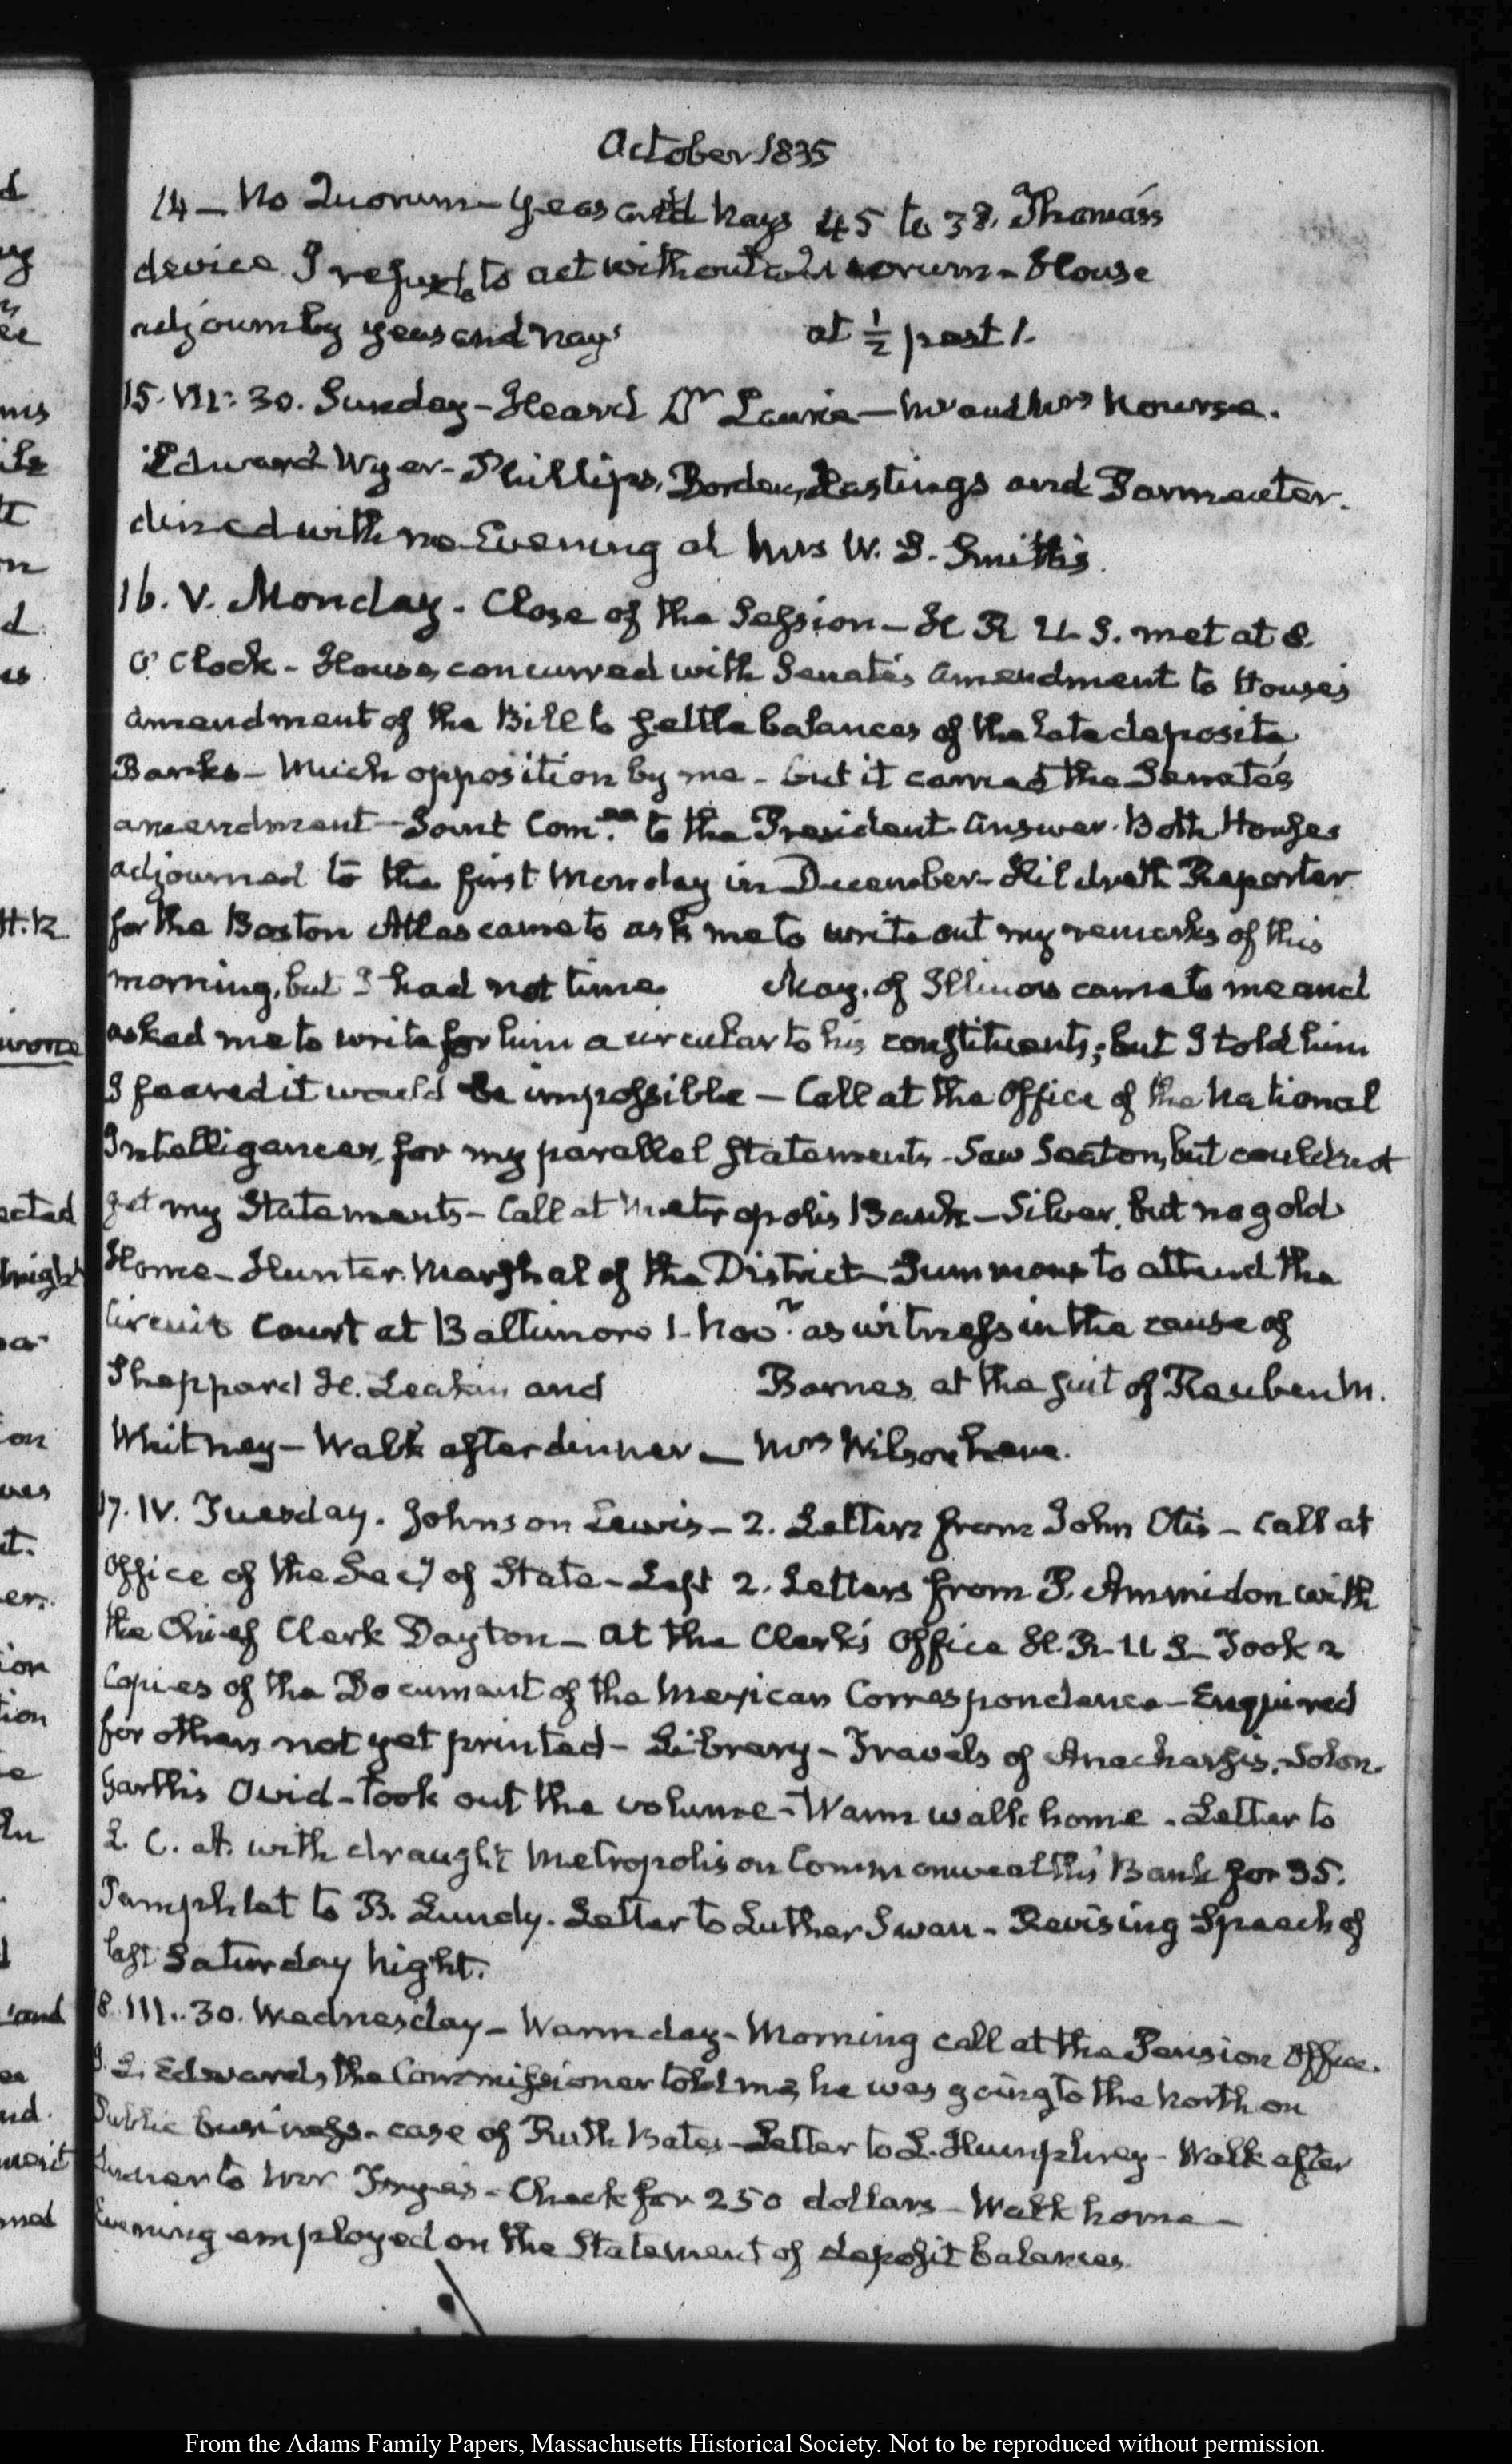 October 1835
14 — No Quorum — Yeas and Nays 45 to 38. Thomas's
device I refuse to act without a Quorum — House
adjourn by yeas and nays at ½ past 1.
15. VII: 30. Sunday — Heard Dr Laurie — Mr and Mrs Nourse.
Edward Wyer — Phillips, Borden, Hastings and Parmenter.
dined with me Evening at Mrs W. S. Smith's.
16. V. Monday. Close of the Session — H R U S. met at 8.
O'Clock — House concurred with Senate's amendment to House's
amendment of the Bill to settle balances of the late deposite
Banks — Much opposition by me — but it carried the Senate's
amendment — Joint Com.ee to the President. Answer. Both Houses
adjourned to the first Monday in December — Hildreth Reporter
for the Boston Atlas came to ask me to write out my remarks of this
morning, but I had not time May, of Illinois came to me and
asked me to write for him a circular to his constituents; but I told him
I feared it would be impossible — Call at the Office of the National
Intelligencer, for my parallel Statements — Saw Seaton, but could not
get my Statements — Call at Metropolis Bank — Silver, but no gold
Home — Hunter. Marshal of the District — Summons to attend the
Circuit Court at Baltimore 1. Nov.r as witness in the cause of
Sheppard H. Leakin and Barnes at the suit of Reuben M.
Whitney — Walk after dinner — Mrs Wilson here.
17. IV. Tuesday. Johnson Lewis — 2. Letters from John Otis — Call at
Office of the Secy of State — Left 2. Letters from P. Ammidon with
the Chief Clerk Dayton — at the Clerk's Office H. R. U S — Took 2
Copies of the Document of the Mexican Correspondence — Enquired
for others not yet printed — Library — Travels of Anacharsis, Solon.
Garth's Ovid — took out the volume — Warm walk home. Letter to
L. C. A. with draught Metropolis on Commonwealth's Bank for 35.
Pamphlet to B. Lundy. Letter to Luther Swan — Revising Speech of
last Saturday Night.
18. III.. 30. Wednesday — Warm day — Morning call at the Pension Office.
J. L. Edwards, the Commissioner told me, he was going to the North on
Public business. case of Ruth Bates — Letter to L. Humphrey — Walk after
dinner to Mr Frye's — Check for 250 dollars — Walk home —
Evening employed on the Statement of deposit balances
d
ms
n
d.
es
H. R.
worce
acted
on
ves
t.
er.
ion
tion
e
and
nd.
From the Adams Family Papers, Massachusetts Historical Society. Not to be reproduced without permission.